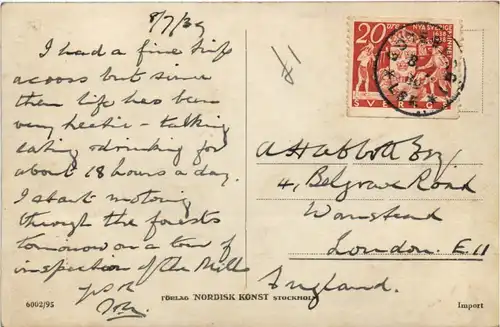 8/7/39
I had a fine trip
across but since
then life has been
very hectic - talking
eating & drinking for
about 18 hours a day.
I start motoring
through the forests
tomorrow on a tour of
inspection of the Mills
£1
20 ÖRE
NYA SVERIGE
1638
1938
SVERIGE
A H Abbott Esq
4, Belgrave Road
Wanstead
London. E 11
England.
6002/95
FÖRLAG NORDISK KONST STOCKHOLM
Import